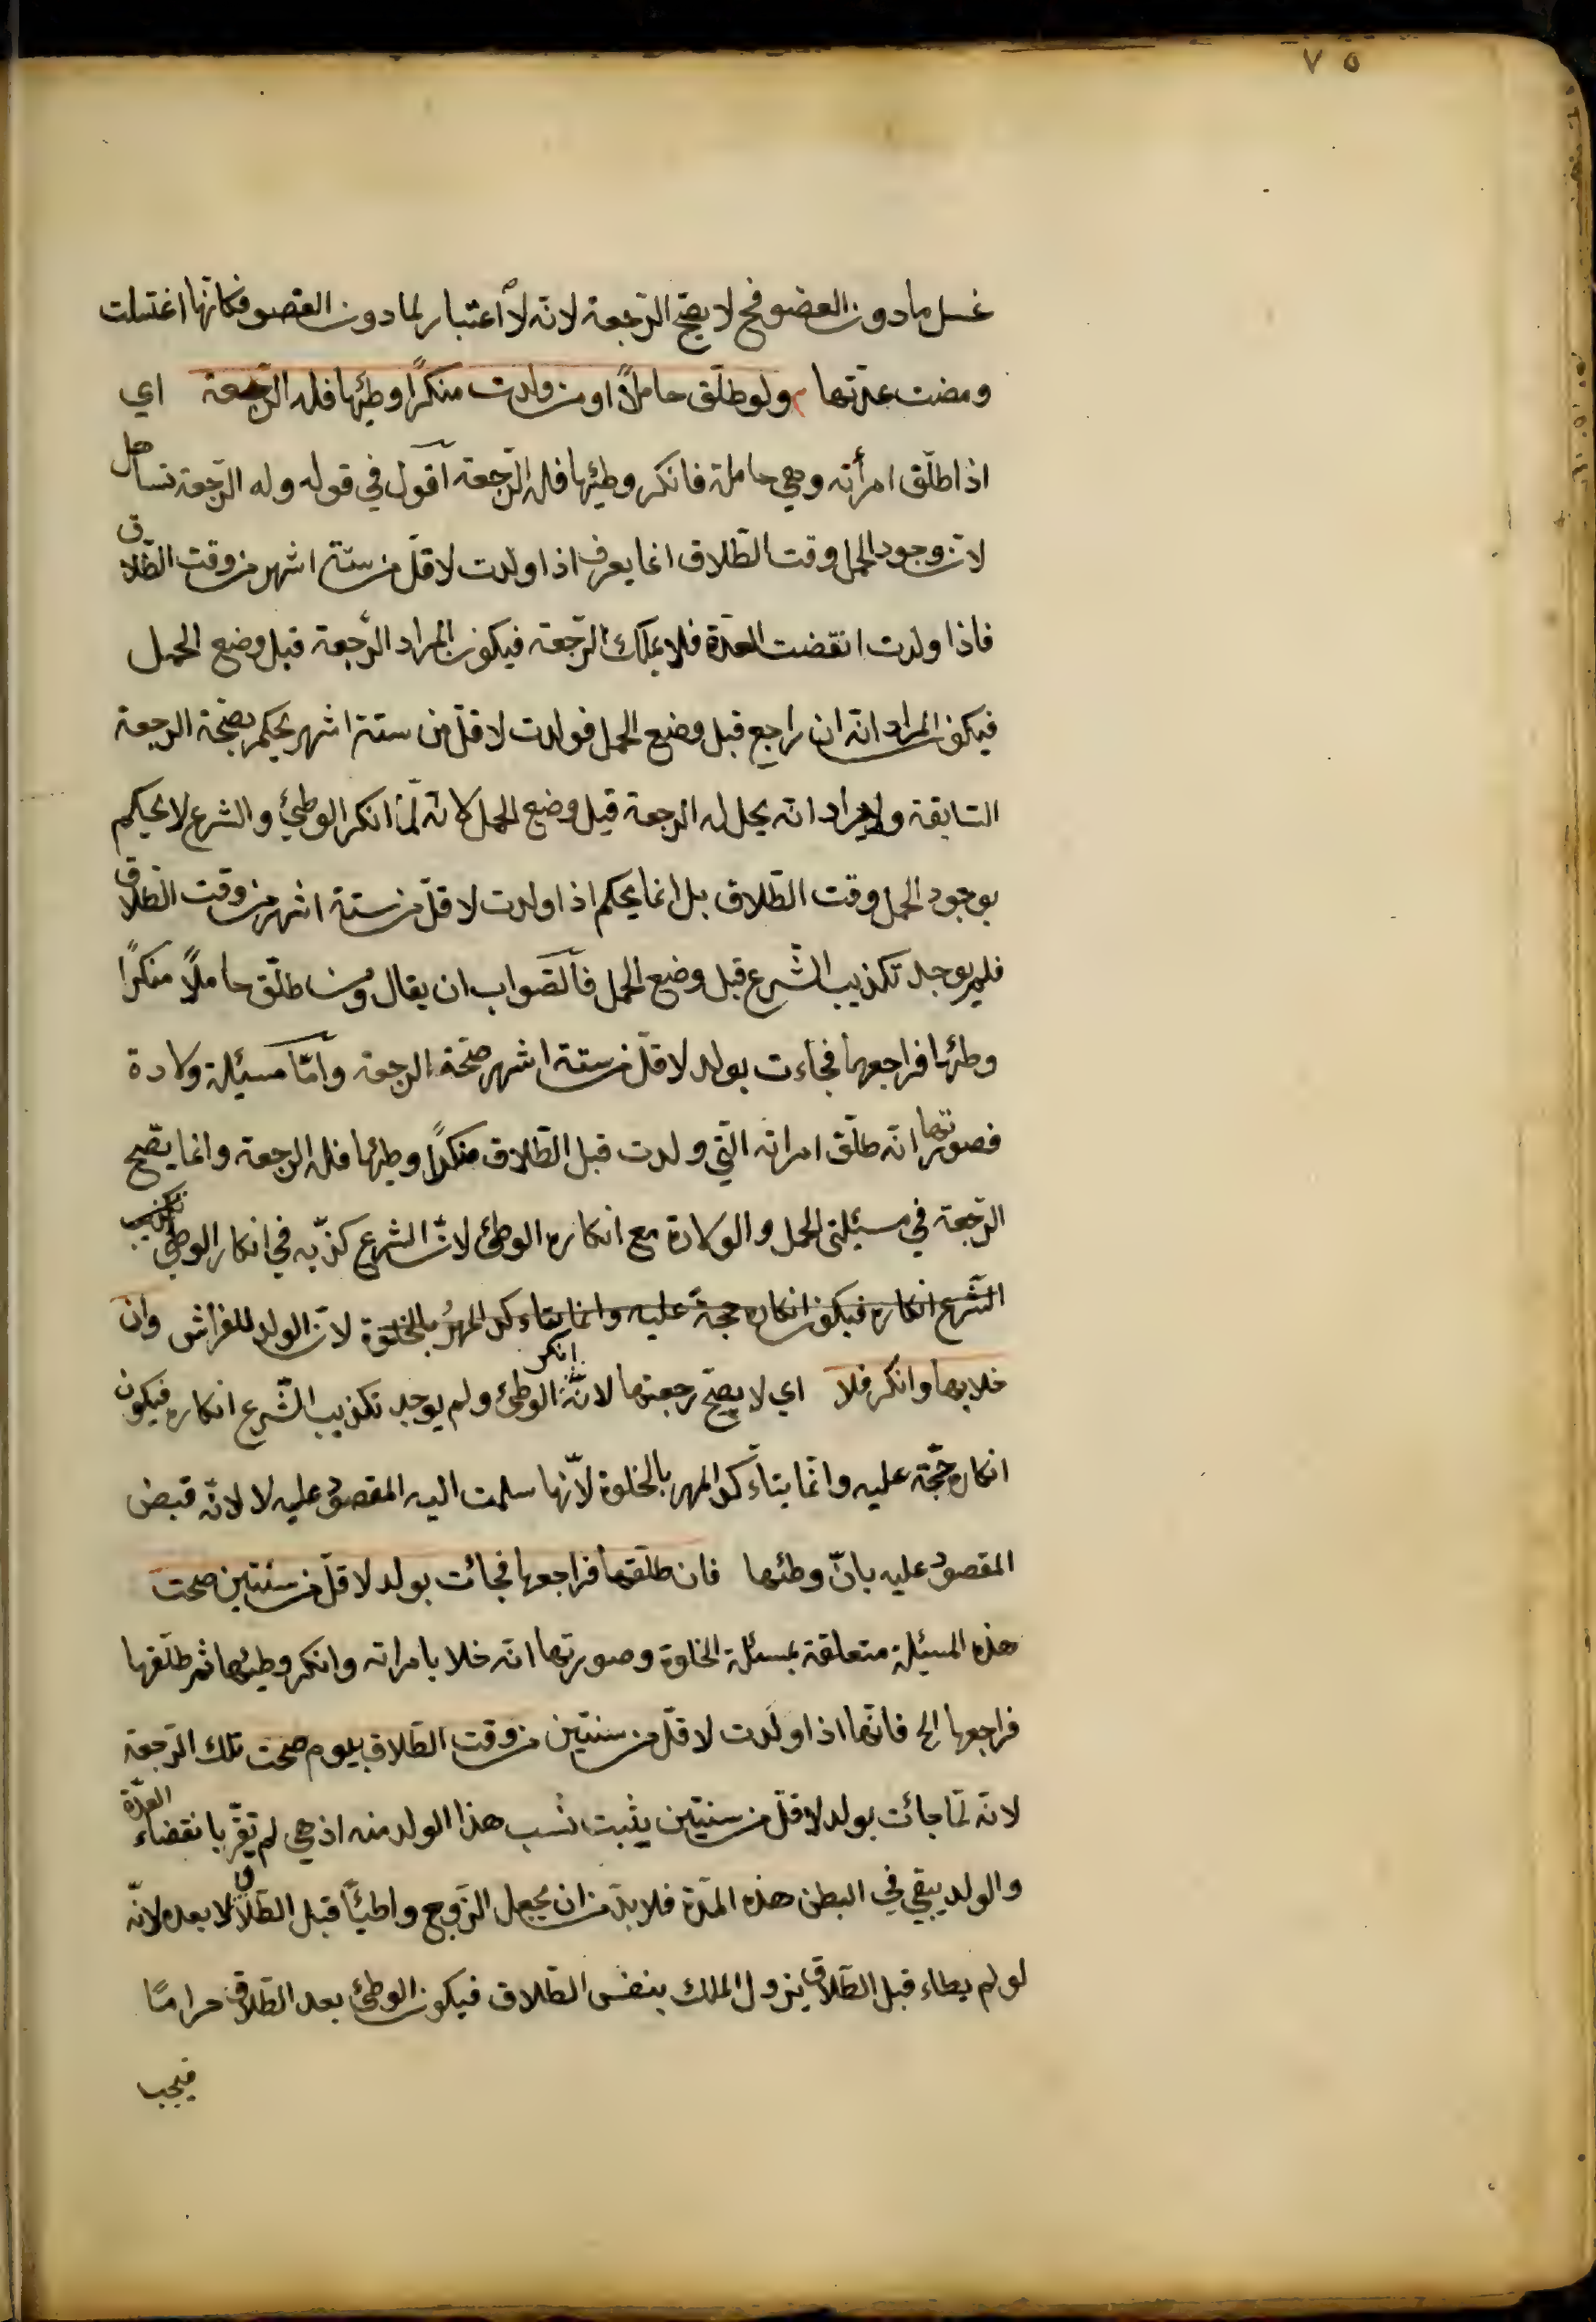 ٧٥
غسل ما دون العضو فح لا يصحّ الرّجعة لانه لا اعتبار لما دون العضو فكانّها اغتسلت
ومضت عدّتها ولو طلّق حاملاً او من ولدت منكرًا وطيئها فله الرّجعة اي
اذا طلّق امرأته وهي حاملة فانكر وطيئها فله الرّجعة اقول في قوله وله الرّجعة تساهل
لانّ وجود الحمل وقت الطّلاق انما يعرف اذا ولدت لاقلّ من ستّة اشهر من وقت الطّلاق
فاذا ولدت انقضت العدّة فلا يملك الرّجعة فيكون المراد الرّجعة قبل وضع الحمل
فيكون المراد انّه ان راجع قبل وضع الحمل فولدت لاقلّ من ستة اشهر يحكم بصحّة الرجعة
السّابقة ولا يراد انّه يحلّ له الرّجعة قبل وضع الحمل لانّه لمّا انكر الوطئ والشرع لا يحكم
بوجود الحمل وقت الطّلاق بل انما يحكم اذا ولدت لاقلّ من ستة اشهر من وقت الطّلاق
فلم يوجد تكذيب الشّرع قبل وضع الحمل فالصّواب ان يقال ومن طلّق حاملاً منكرًا
وطئها فراجعها فجاءت بولد لاقلّ من ستة اشهر صحّة الرجعة وامّا مسئلة ولادة
فصورتها انّه طلّق امراته الّتي ولدت قبل الطّلاق منكرًا وطيئها فله الرجعة وانما يصّح
الرّجعة في مسئلتى الحمل والولادة مع انكاره الوطئ لانّ الشرع كذّبه في انكار الوطئ تكذيب
الشّرع انكاره فيكون انكاره حجة عليه وانما يتاءكد المهر بالخلوة لانّ الولد للفراش وان
خلا بها وانكر فلا اي لا يصحّ رجعتها لانّه انكر الوطئ ولم يوجد تكذيب الشّرع انكاره فيكون
انكاره حجّة عليه وانّما يتأكّد المهر بالخلوة لانّها سلمت اليه المقصود عليه لا لانّه قبض
المقصود عليه بانّ وطئها فان طلّقها فراجعها فجائت بولد لاقلّ من سنتين صحت
هذه المسئلة متعلقة بمسئلة الخلوة وصورتها انّه خلا بامراته وانكر وطيئها ثم طلّقها
فراجعها الخ فانّها اذا ولدت لاقلّ من سنتين من وقت الطّلاق بيوم صحّت تلك الرّجعة
لانّه لمّا جائت بولد لاقلّ من سنتين يثبت نسب هذا الولد منه اذ هي لم تقرّ بانقضاء العدّة
والولد يبقي في البطن هذه المدّة فلا بدّ من ان يجعل الزّوج واطيًا قبل الطّلاق لا بعده لانّه
لو لم يطاء قبل الطّلاق يزول الملك بنفس الطّلاق فيكون الوطئ بعد الطّلاق حرامًا
فيجب